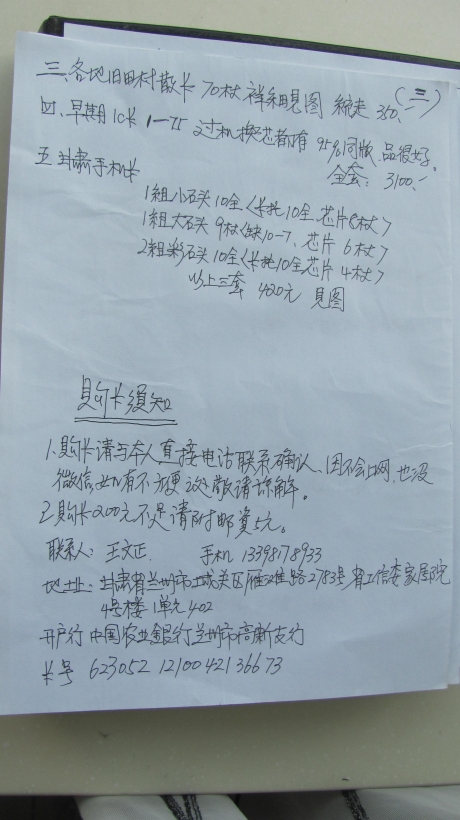 (三)
三、各地旧田村散卡70枚 祥细見图 統走350.—
四、早期IC卡 1—75 过机换芯都有 95%同版、品很好。
全套：3100.—
五 甘肃手机卡
1组小石头10全<卡托10全 芯片8枚>
1组大石头9枚<缺10-7、芯片6枚>
2组彩石头10全<卡托10全 芯片4枚>
以上三套 420元 見图
购卡须知
1.购卡请与本人直接电话联系确认、因不会上网、也没
微信 如有不方便 这敬请谅解。
2.购卡200元不足请附邮資5元。
联系人：王文正. 手机 13398178933
地址：甘肃省兰州市城关区雁滩路2783号 省工信委家属院
4号楼1单元402
开户行 中国农业銀行兰州市高新支行
卡号 623052 1210042136673